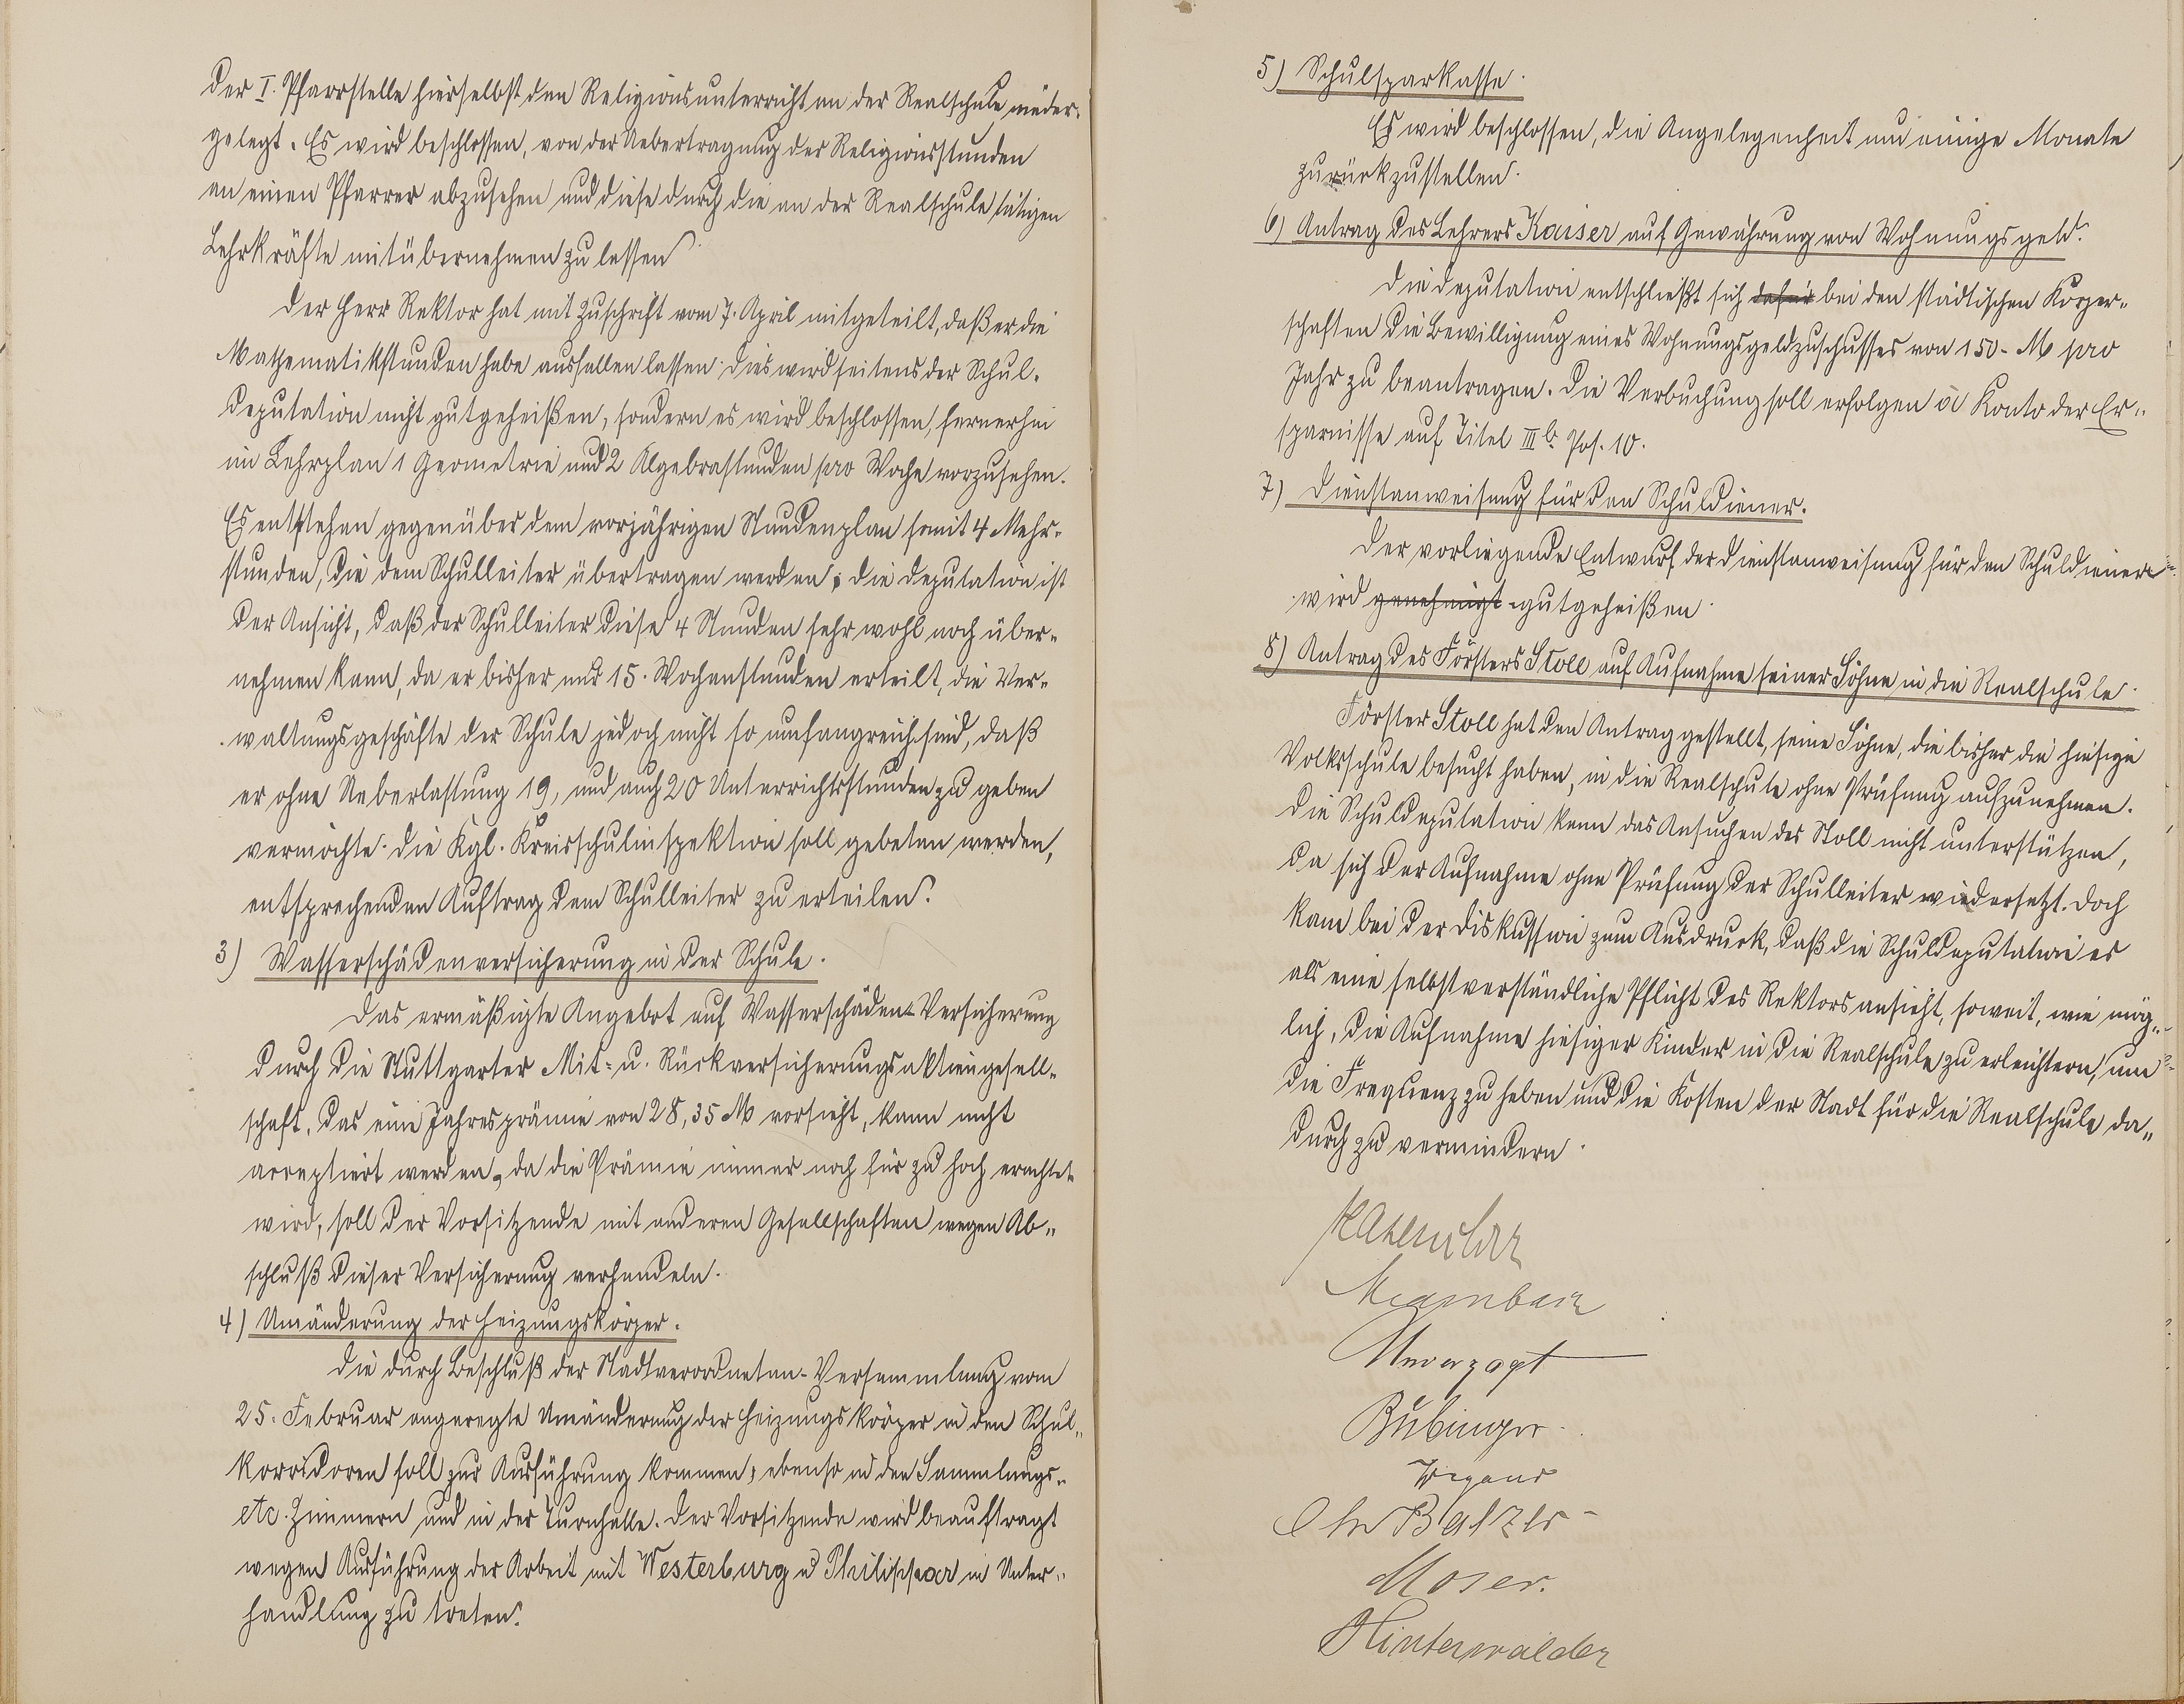 der I. Pfarrstelle hierselbst den Religionsunterricht an der Realschule nieder-
gelegt. Es wird beschlossen, von der Uebertragung der Religionsstunden
an einen Pfarrer abzusehen und diese durch die an der Realschule tätigen
Lehrkräfte mitübernehmen zu lassen.
Der Herr Rektor hat mit Zuschrift vom 7. April mitgeteilt, daß er die
Mathematikstunden habe ausfallen lassen. Dies wird seitens der Schul-
deputation nicht gutgeheißen, sondern es wird beschlossen, fernerhin
im Lehrplan 1 Geometrie und 2 Algebrastunden pro Woche vorzusehen.
Es entstehen gegenüber dem vorjährigen Stundenplan somit 4 Mehr-
stunden, die dem Schulleiter übertragen werden; die Deputation ist
der Ansicht, daß der Schulleiter diese 4 Stunden sehr wohl noch über-
nehmen kann, da er bisher nur 15. Wochenstunden erteilt, die Ver-
waltungsgeschäfte der Schule jedoch nicht so umfangreich sind, daß
er ohne Ueberlastung 19, und auch 20 Unterrichtsstunden zu geben
vermöchte. Die Kgl. Kreisschulinspektion soll gebeten werden,
entsprechenden Auftrag dem Schulleiter zu erteilen.
3) Wasserschädenversicherung in der Schule.
Das ermäßigte Angebot auf Wasserschäden-Versicherung
durch die Stuttgarter Mit- u. Rückversicherungsaktiengesell-
schaft, das eine Jahresprämie von 28,35 M vorsieht, kann nicht
acceptiert werden, da die Prämie immer noch für zu hoch erachtet
wird, soll der Vorsitzende mit anderen Gesellschaften wegen Ab-
schluß dieser Versicherung verhandeln.
4) Umänderung der Heizungskörper.
Die durch Beschluß der Stadtverordneten-Versammlung vom
25. Februar angeregte Umänderung der Heizungskörper in den Schul-
korridoren soll zur Ausführung kommen, ebenso in den Sammlungs-
etc. Zimmern und in der Turnhalle. Der Vorsitzende wird beauftragt
wegen Ausführung der Arbeit mit Westerburg u Philippar in Unter-
handlung zu treten.
5) Schulsparkasse.
Es wird beschlossen, die Angelegenheit um einige Monate
zurückzustellen.
6) Antrag des Lehrers Kaiser auf Gewährung von Wohnungsgeld.
Die Deputation entschließt sich dafür bei den städtischen Körper-
schaften die Bewilligung eines Wohnungsgeldzuschusses von 150- M pro
Jahr zu beantragen. Die Verbuchung soll erfolgen à Konto der Er-
sparnisse auf Titel III b. Pos. 10.
7) Dienstanweisung für den Schuldiener.
Der vorliegende Entwurf der Dienstanweisung für den Schuldiener
wird genehmigt gutgeheißen.
8) Antrag des Försters Stoll auf Aufnahme seiner Söhne in die Realschule.
Förster Stoll hat den Antrag gestellt, seine Söhne, die bisher die hiesige
Volksschule besucht haben, in die Realschule ohne Prüfung aufzunehmen.
Die Schuldeputation kann das Ansuchen des Stoll nicht unterstützen,
da sich der Aufnahme ohne Prüfung der Schulleiter wiedersetzt. Doch
kam bei der Diskussion zum Ausdruck, daß die Schuldeputation es
als eine selbstverständliche Pflicht des Rektors ansieht, soweit, wie mög-
lich, die Aufnahme hiesiger Kinder in die Realschule zu erleichtern, um
die Frequenz zu heben und die Kosten der Stadt für die Realschule da-
durch zu vermindern.
Unverzagt
Bübinger
Wigand
Chr Balzer
Moser.
Hinterwälder